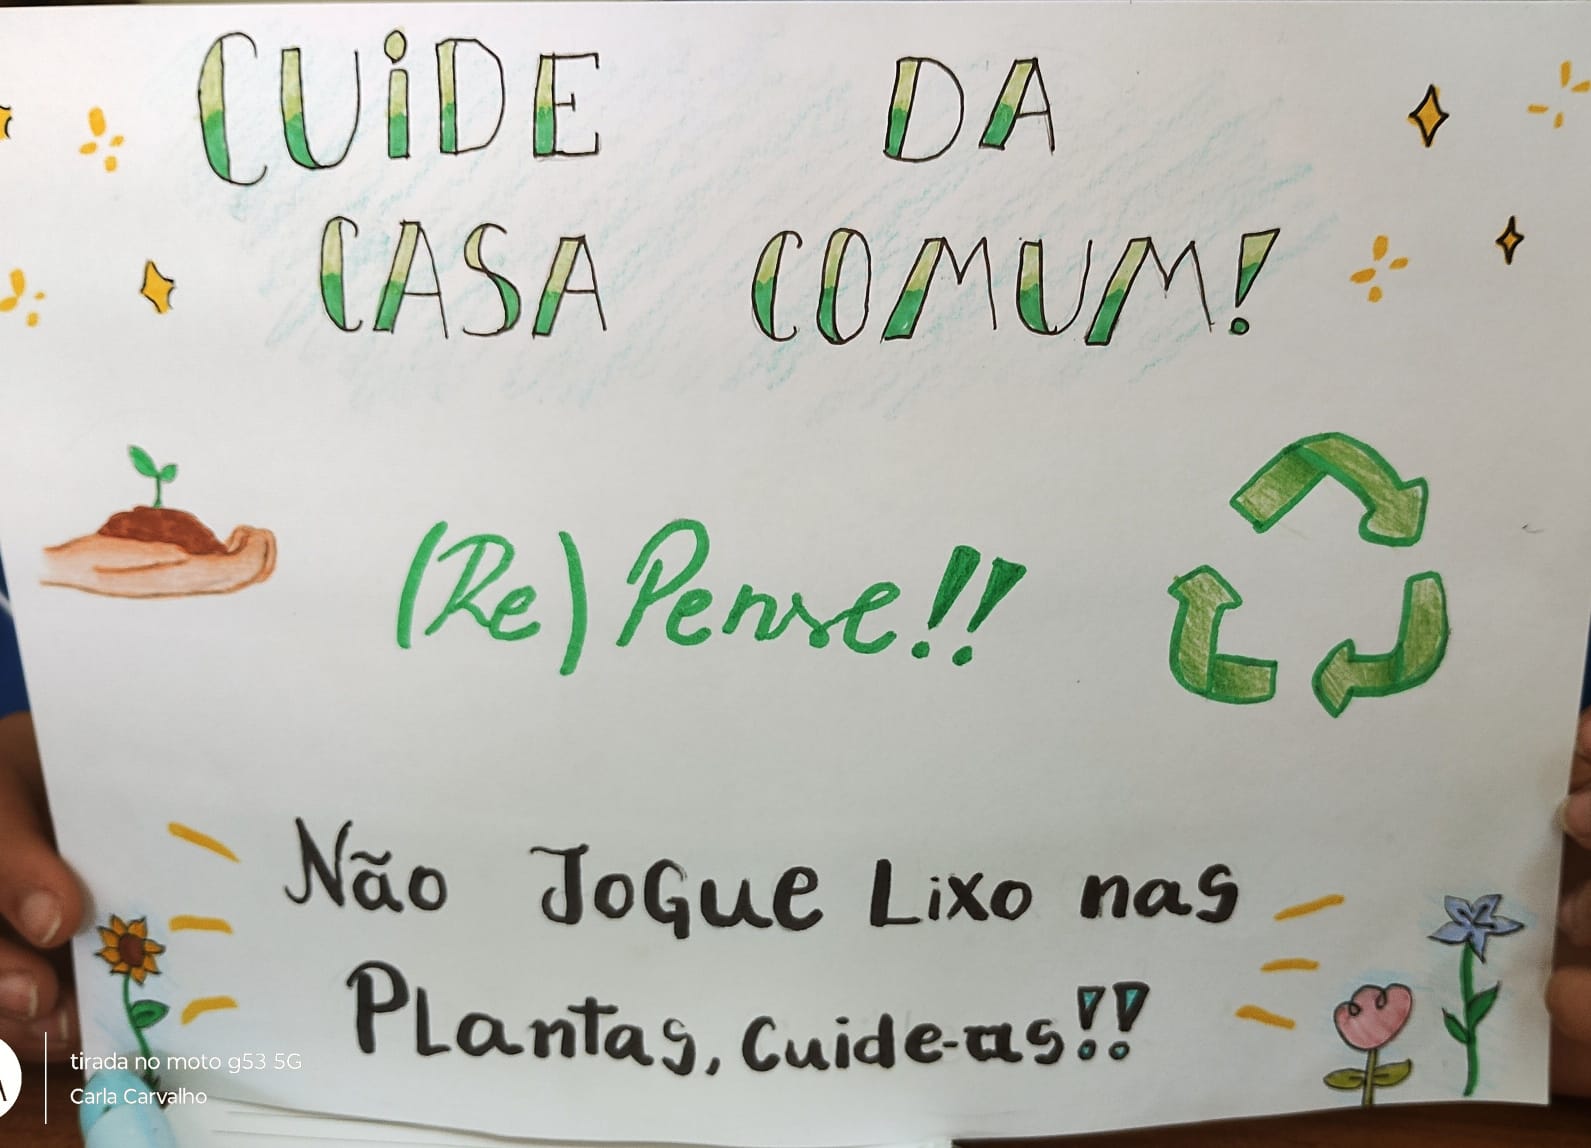 CUiDE DA
CASA COMUM!
(Re)Pense!!
Não JoGue Lixo nas
PLantas, Cuide-as!!
tirada no moto g53 5G
Carla Carvalho